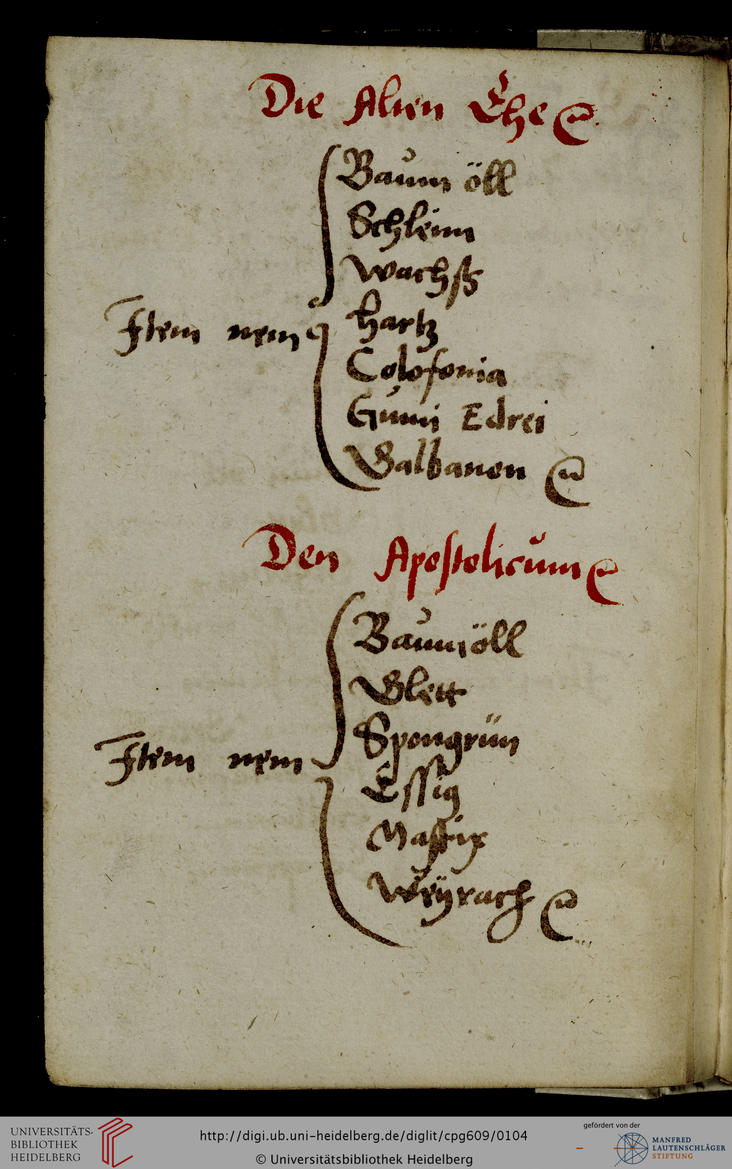 Die Alten Ehe
Baum öll
Schleim
Wachß
Item nem
hartz
Colofonia
Gumi Edrei
Galbanen
Den Apostolicum
Baumöll
Glett
Spongrün
Item nem
Essig
Mastix
Weÿrach
UNIVERSITÄTS-
BIBLIOTHEK
HEIDELBERG
http://digi.ub.uni-heidelberg.de/diglit/cpg609/0104
© Universitätsbibliothek Heidelberg
gefördert von der
MANFRED
LAUTENSCHLÄGER
STIFTUNG